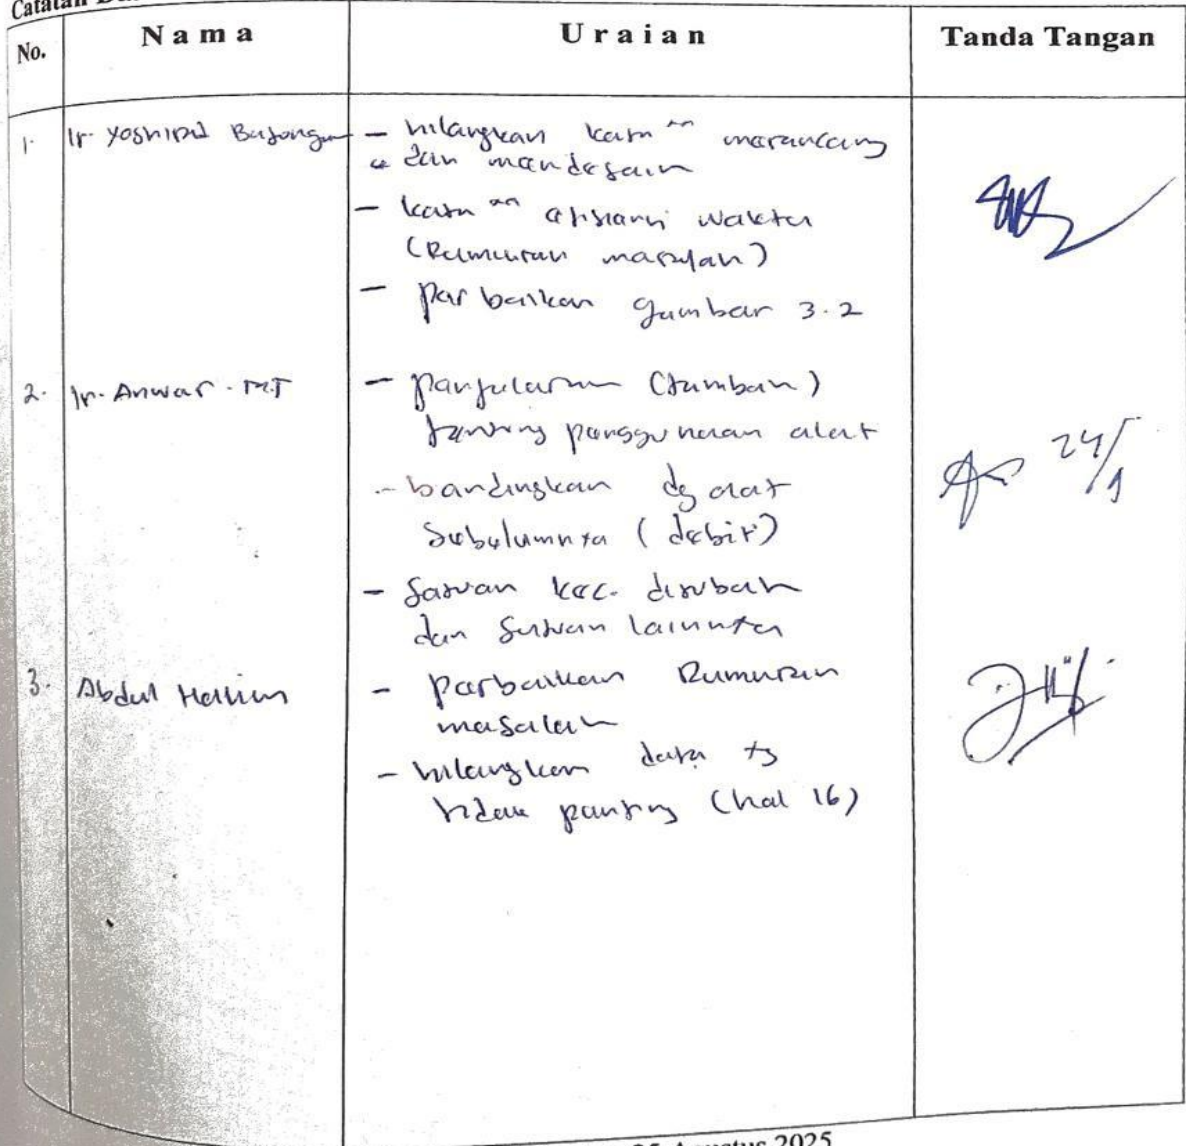 Catatan
No. Nama Uraian Tanda Tangan
1. Ir. Yoshirul Bajongun - hilangkan kata "" merancang
dan mendesain
- kata "" efisiensi waktu
(Rumusan masalah)
- perbaikan gambar 3.2
2. Ir. Anwar. MT - penjelasan (tambah)
tentang penggunaan alat
- bandingkan dg alat 24/1
sebelumnya (debit)
- satuan kec. dirubah
dan satuan lainnya
3. Abdul Halim - Perbaikan Rumusan
masalah
- hilangkan data yg
tidak penting (hal 16)
Agustus 2025